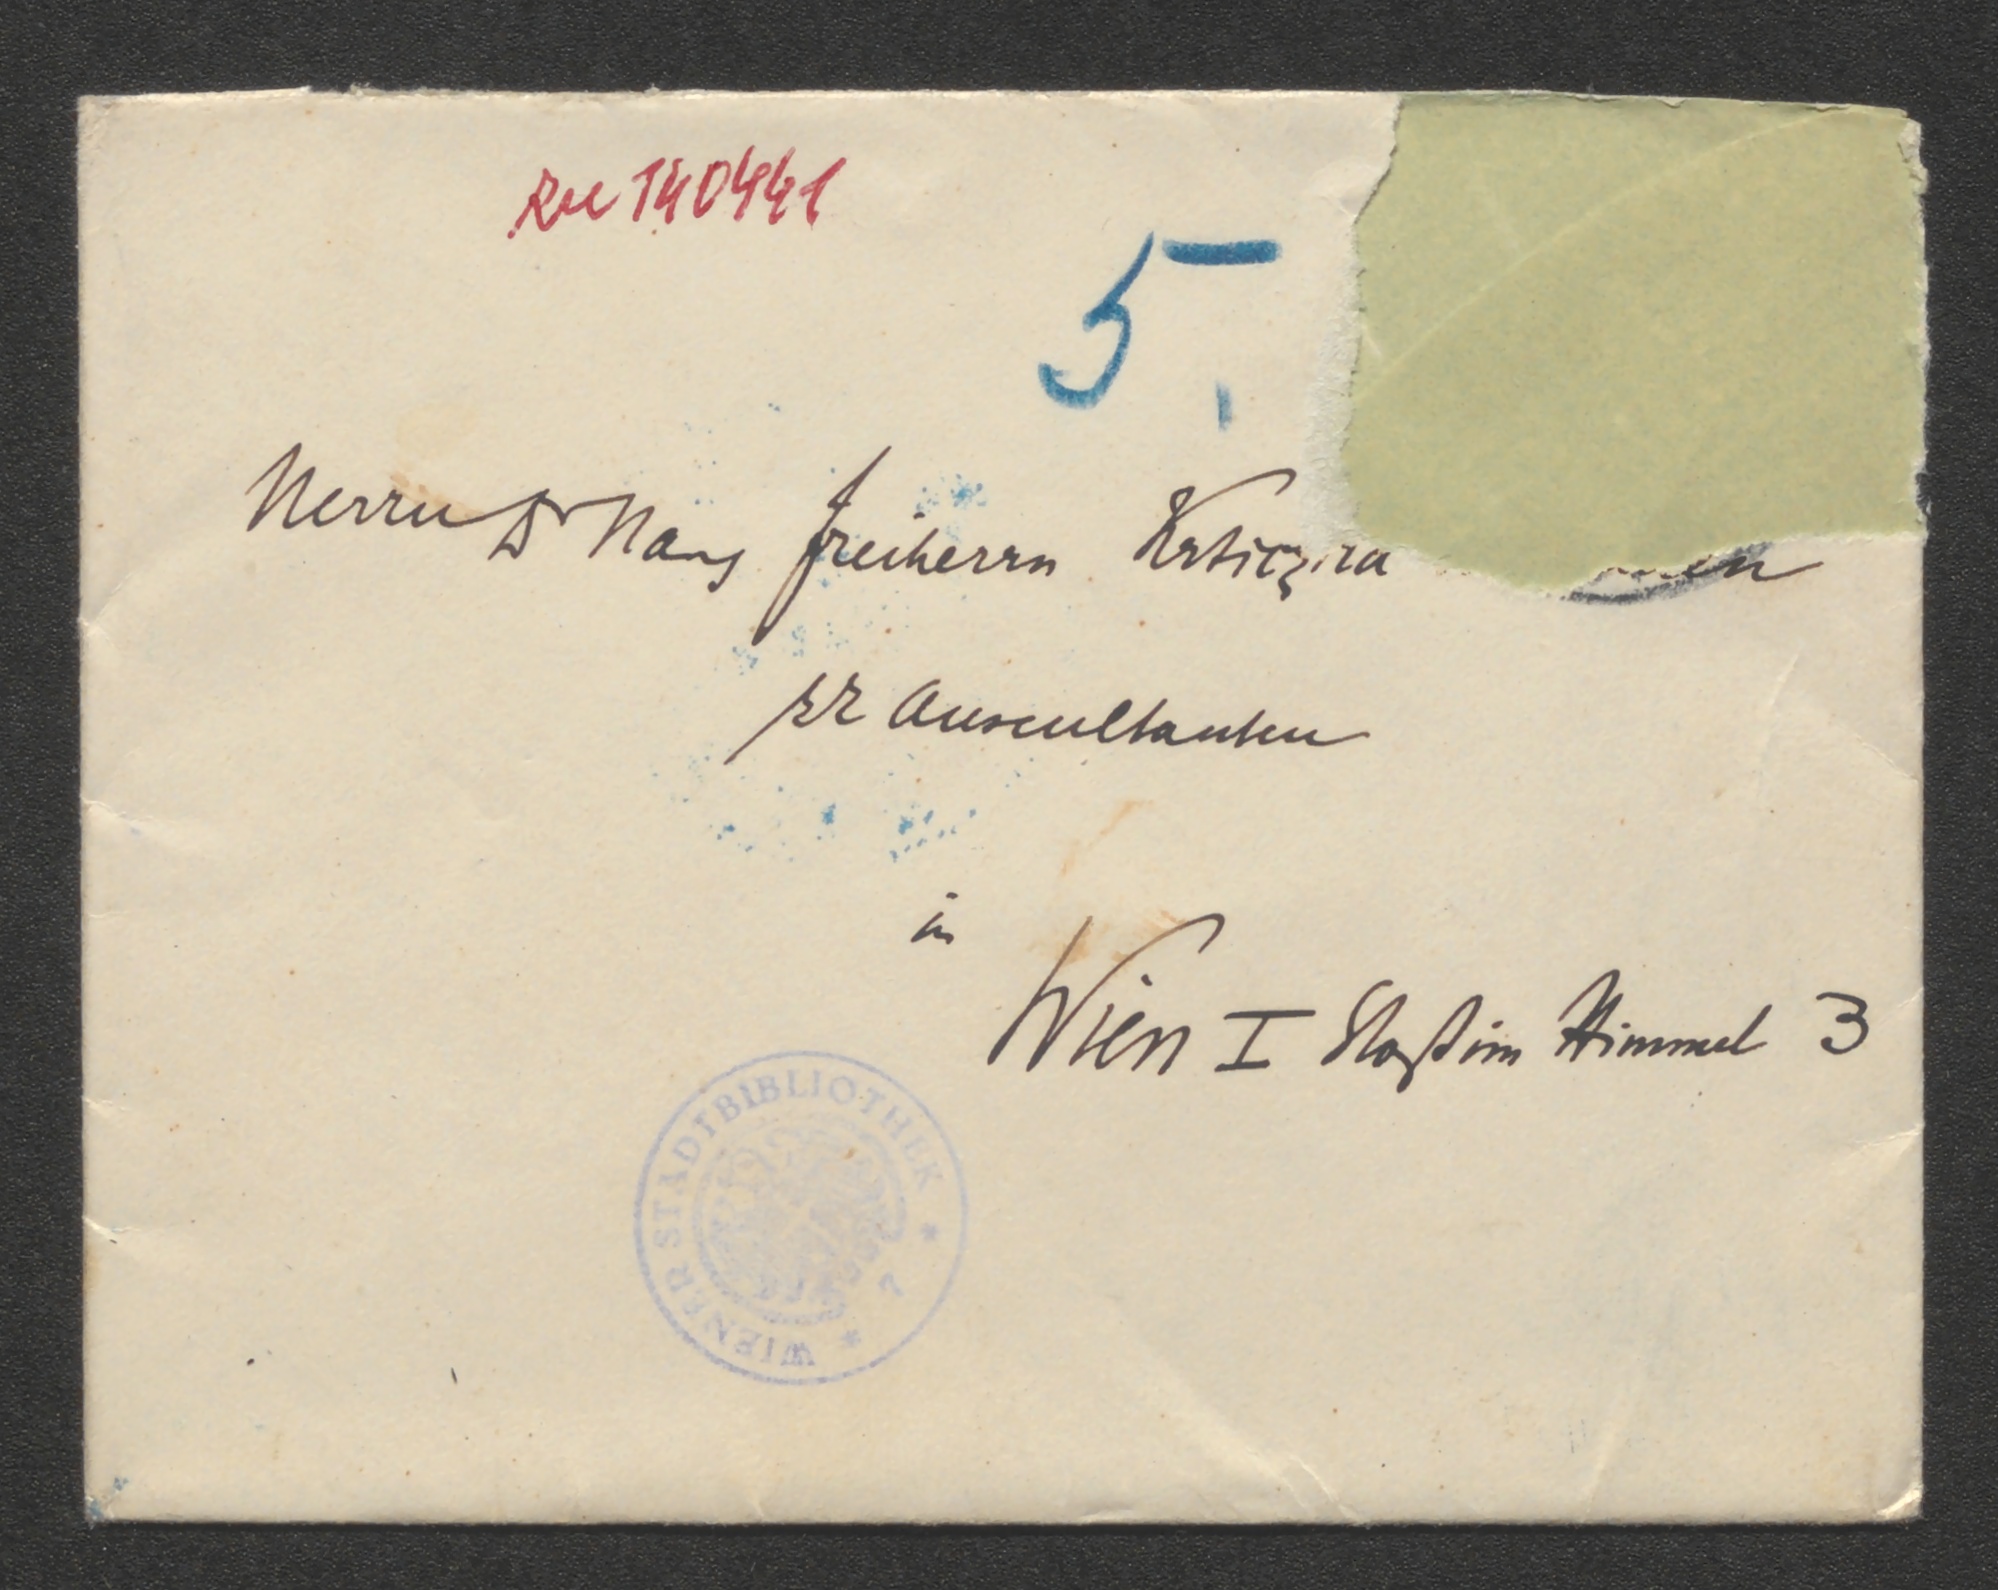 zu 140441
5.
Herrn Dr Hans Freiherrn Krticzka
kk Auscultanten
in
Wien I Stoß im Himmel 3
WIENER STADTBIBLIOTHEK * 7 *